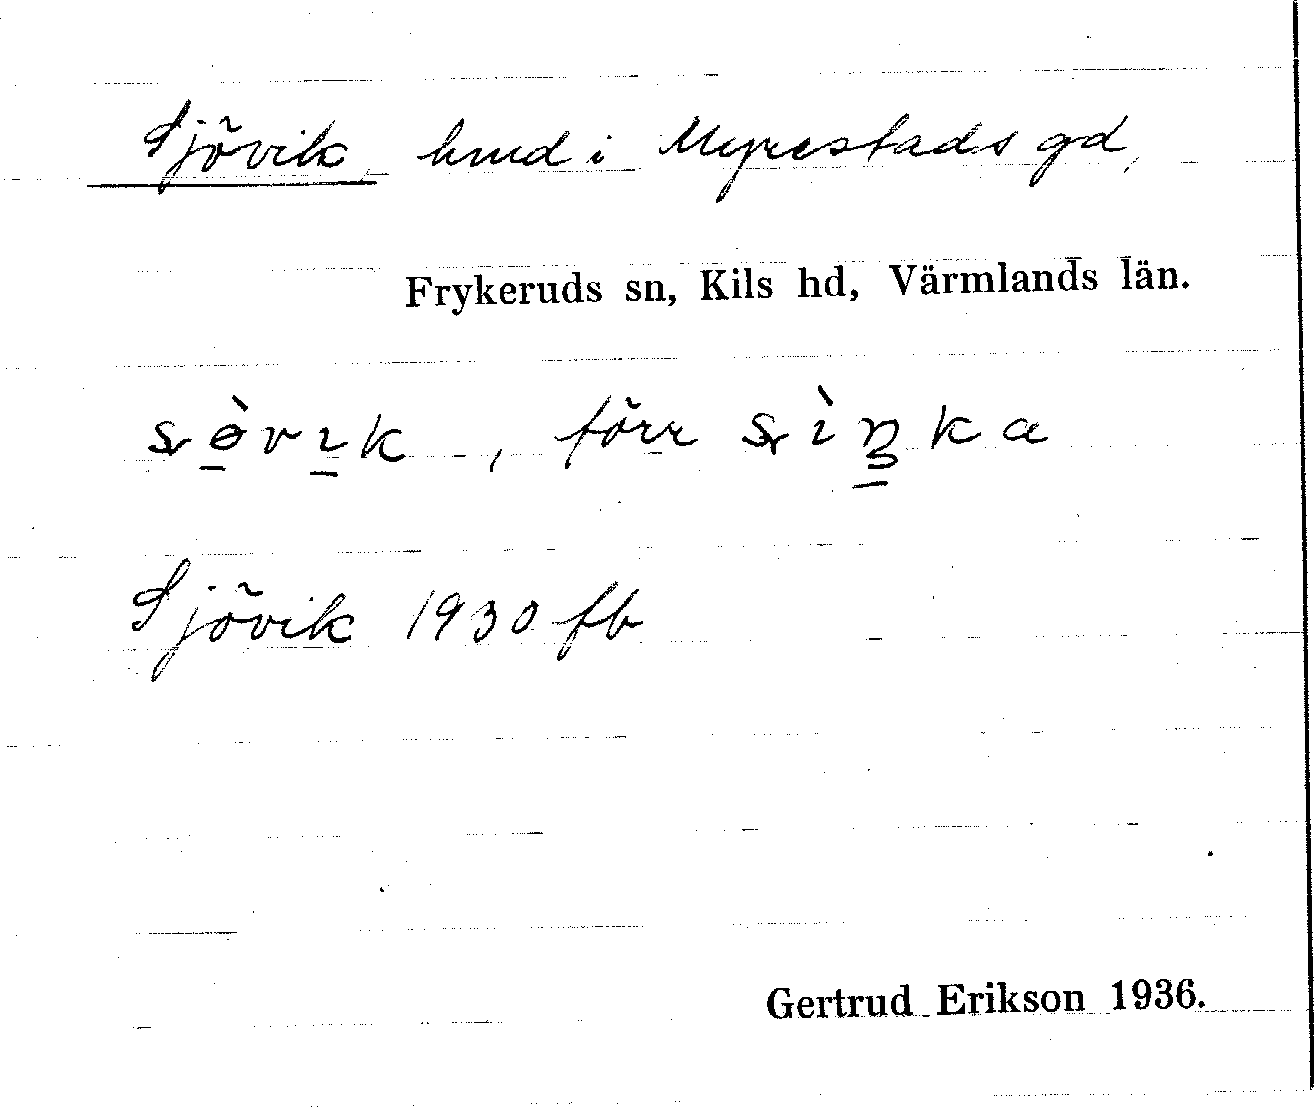 Sjövik, hmd i Myrestads gd,
Frykeruds sn, Kils hd, Värmlands län.
förr
Sjövik 1930 fb
Gertrud Erikson 1936.